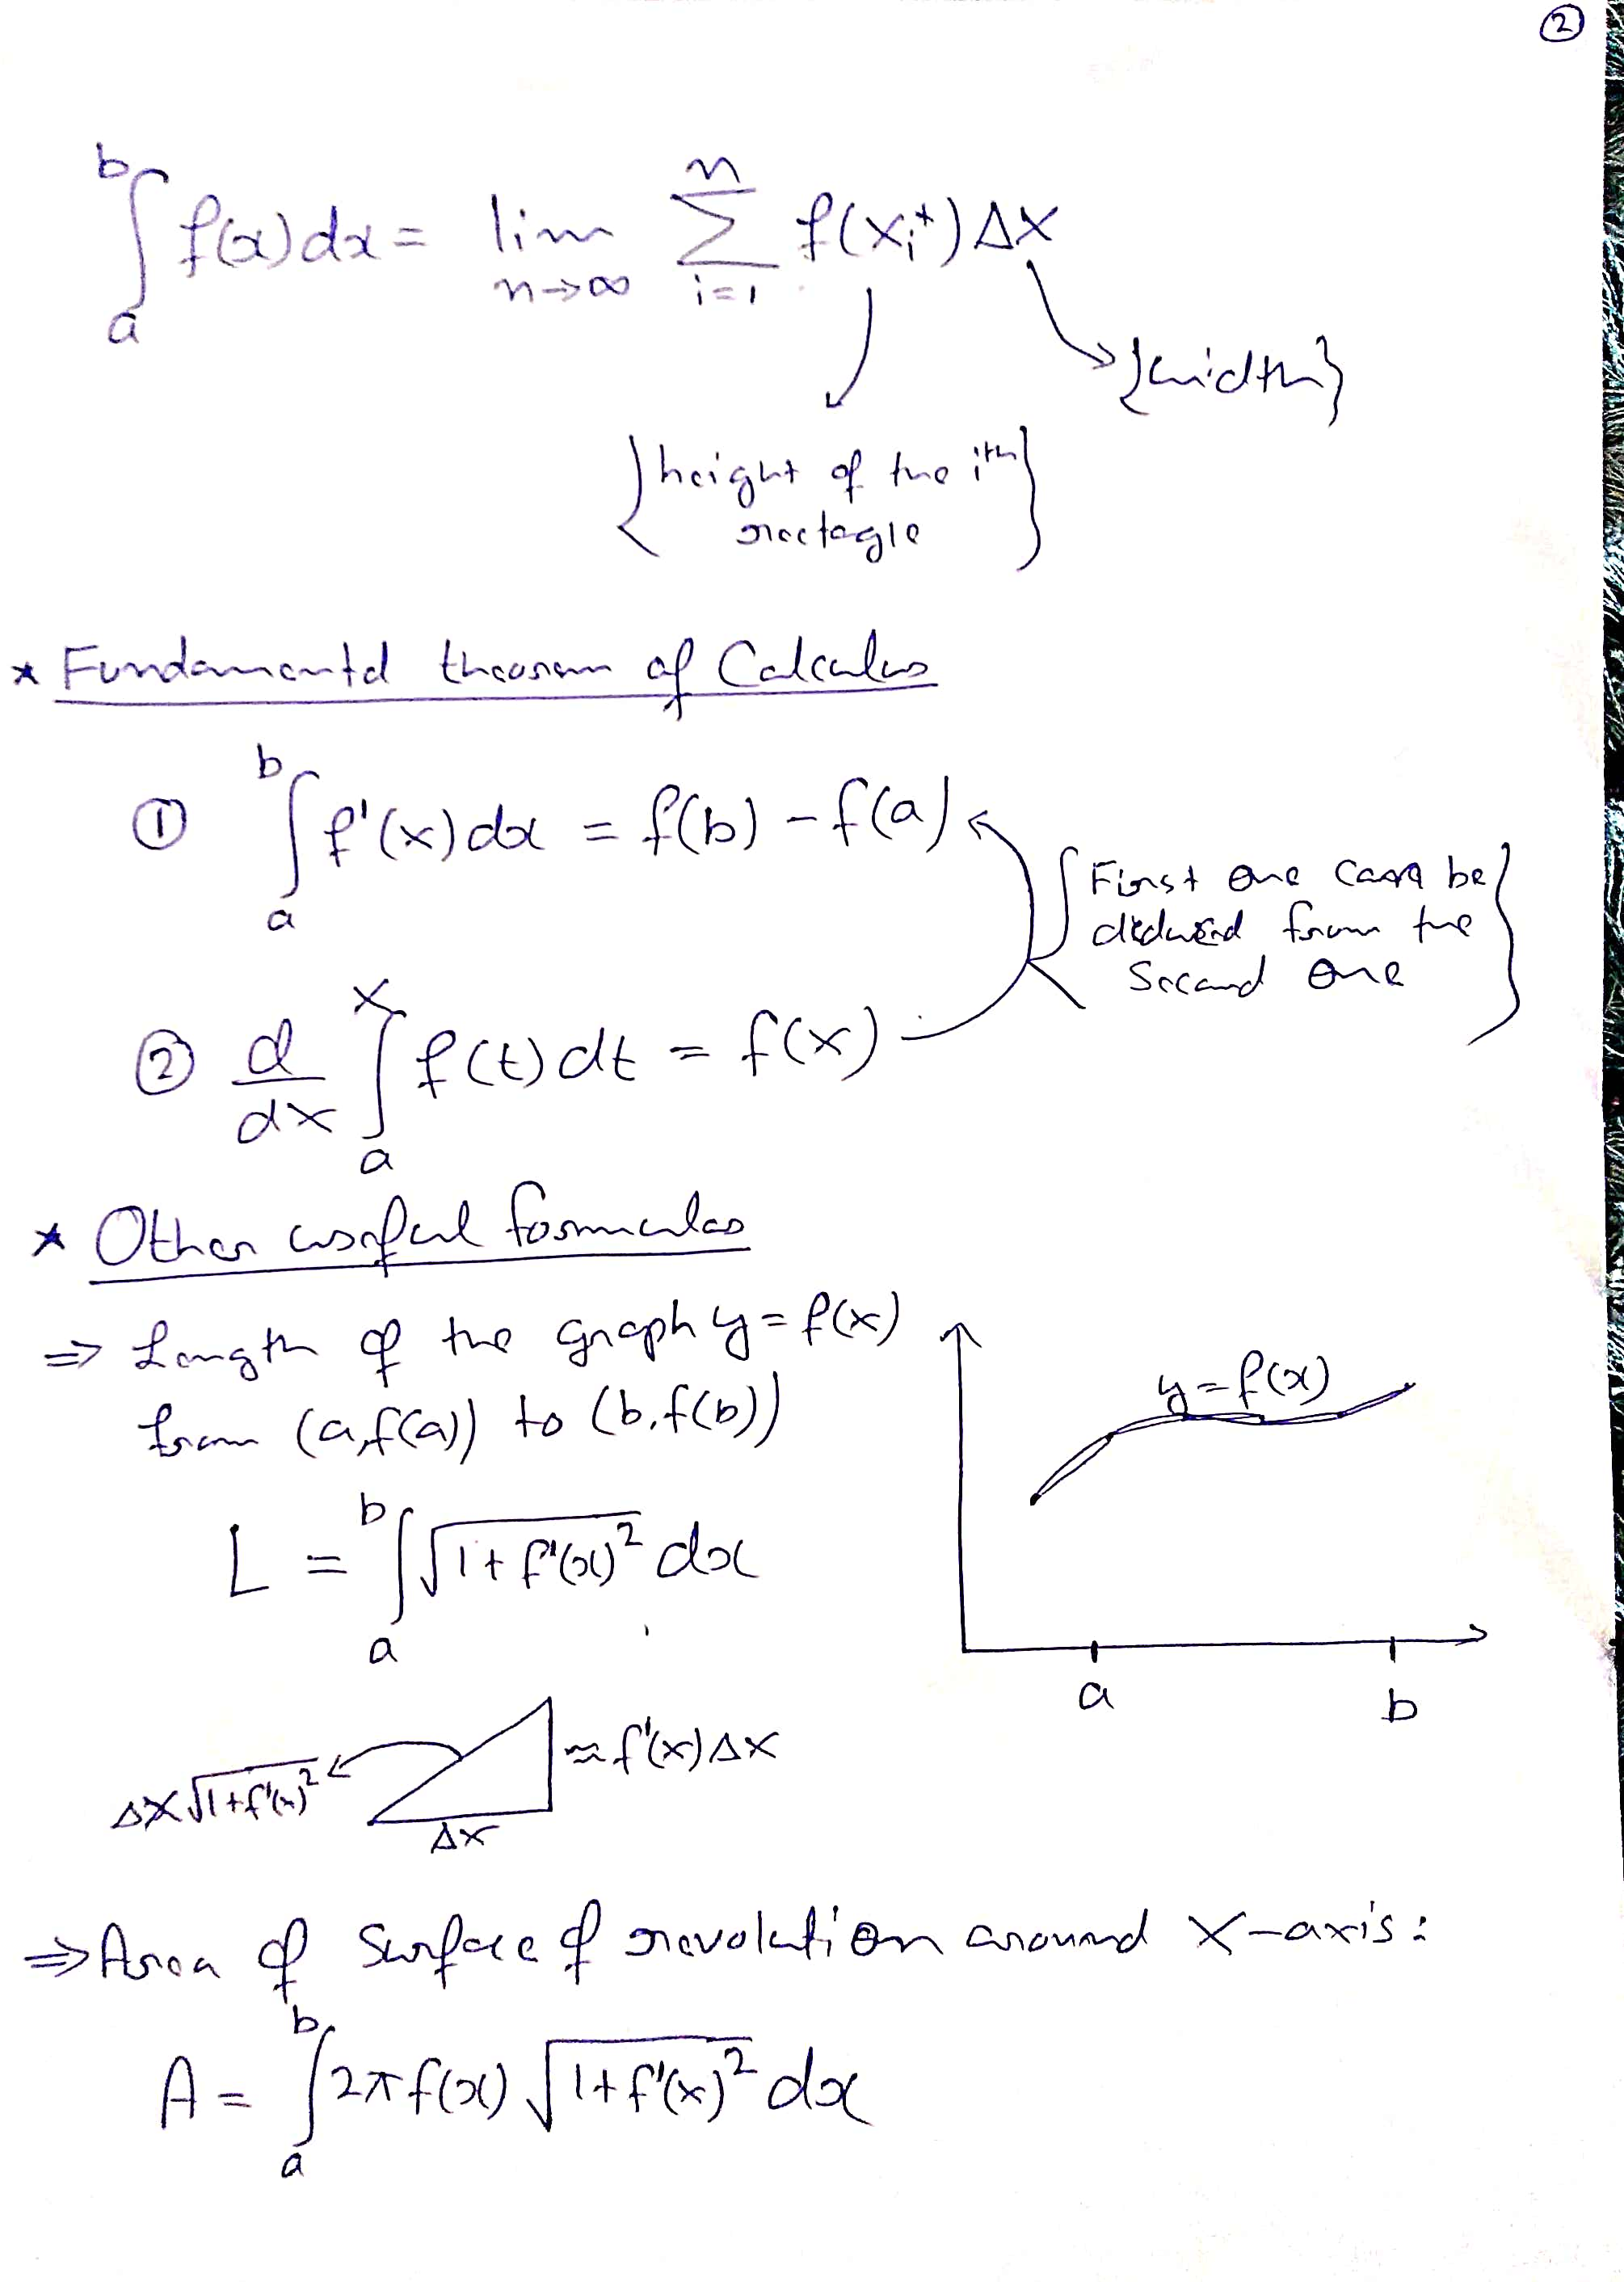 ②
∫_a^b f(x)dx = lim_{n→∞} Σ_{i=1}^n f(x_i^*) Δx
{width}
{height of the ith
rectagle}
* Fundamental theorem of Calculus
① ∫_a^b f'(x)dx = f(b) - f(a)
{First one can be
deduced from the
Second one}
② d/dx ∫_a^x f(t)dt = f(x)
* Other useful formulas
⇒ Length of the graph y = f(x)
from (a,f(a)) to (b,f(b))
y = f(x)
L = ∫_a^b √(1+f'(x)²) dx
a b
≈ f'(x)Δx
Δx√(1+f'(x)²)
Δx
⇒ Area of Surface of revolution around X-axis:
A = ∫_a^b 2πf(x) √(1+f'(x)²) dx